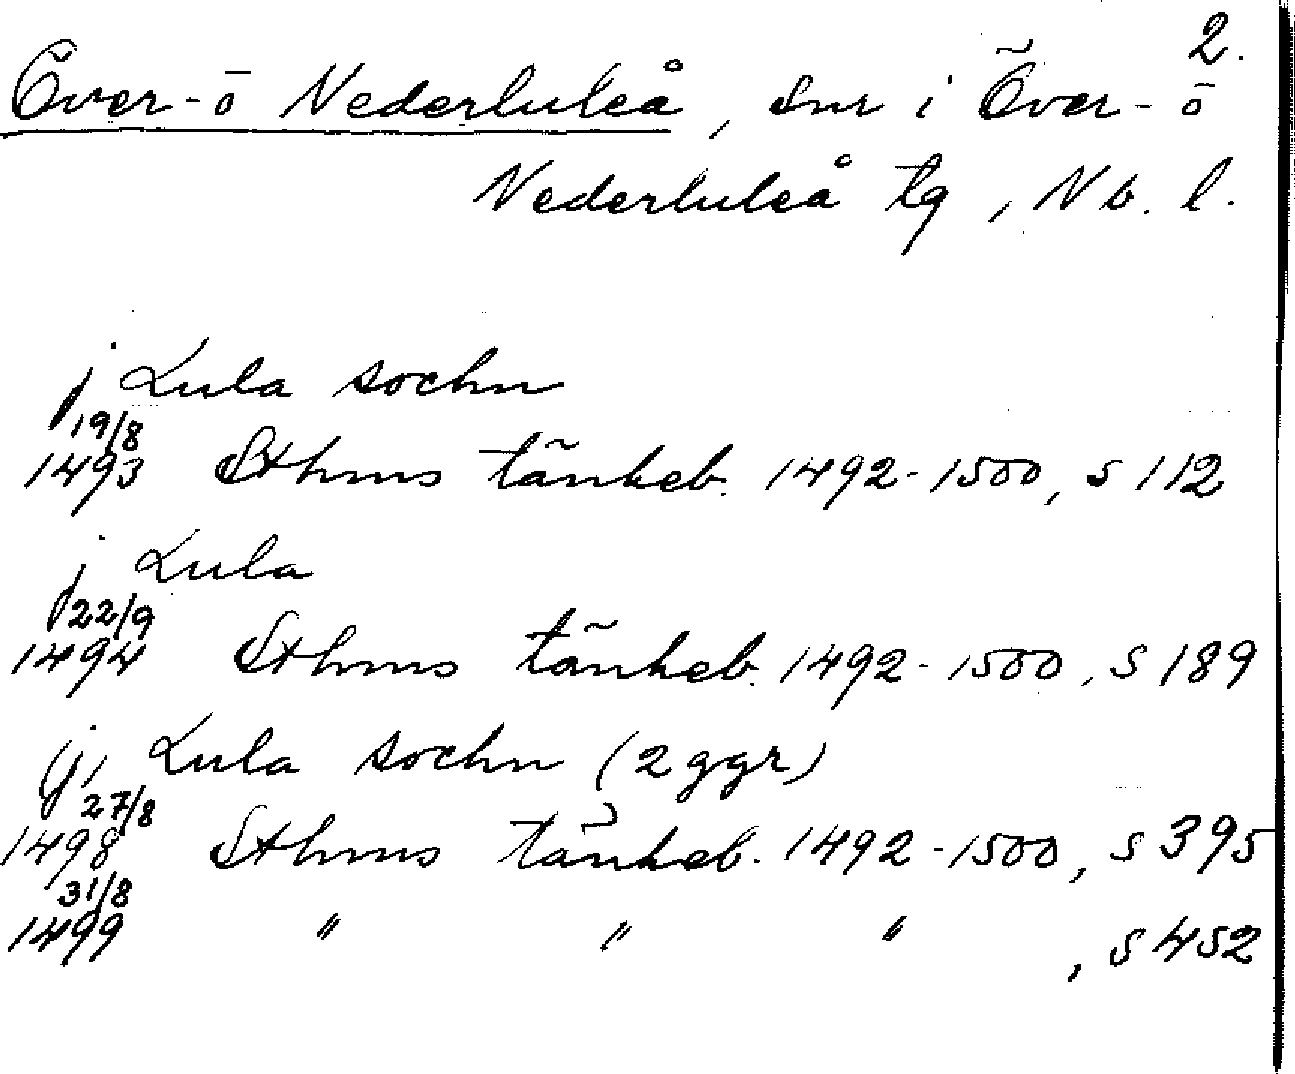 2.
Över- o Nederluleå, snr i Över- o
Nederluleå tg, Nb. l.
j Lula sochn
19/8
1493 Sthms tänkeb. 1492-1500, s 112
j Lula
22/9
1494 Sthms tänkeb. 1492-1500, s 189
(j) Lula sochn (2 ggr)
27/8
1498 Sthms tänkeb. 1492-1500, s 395
31/8
1499 " " " , s 452